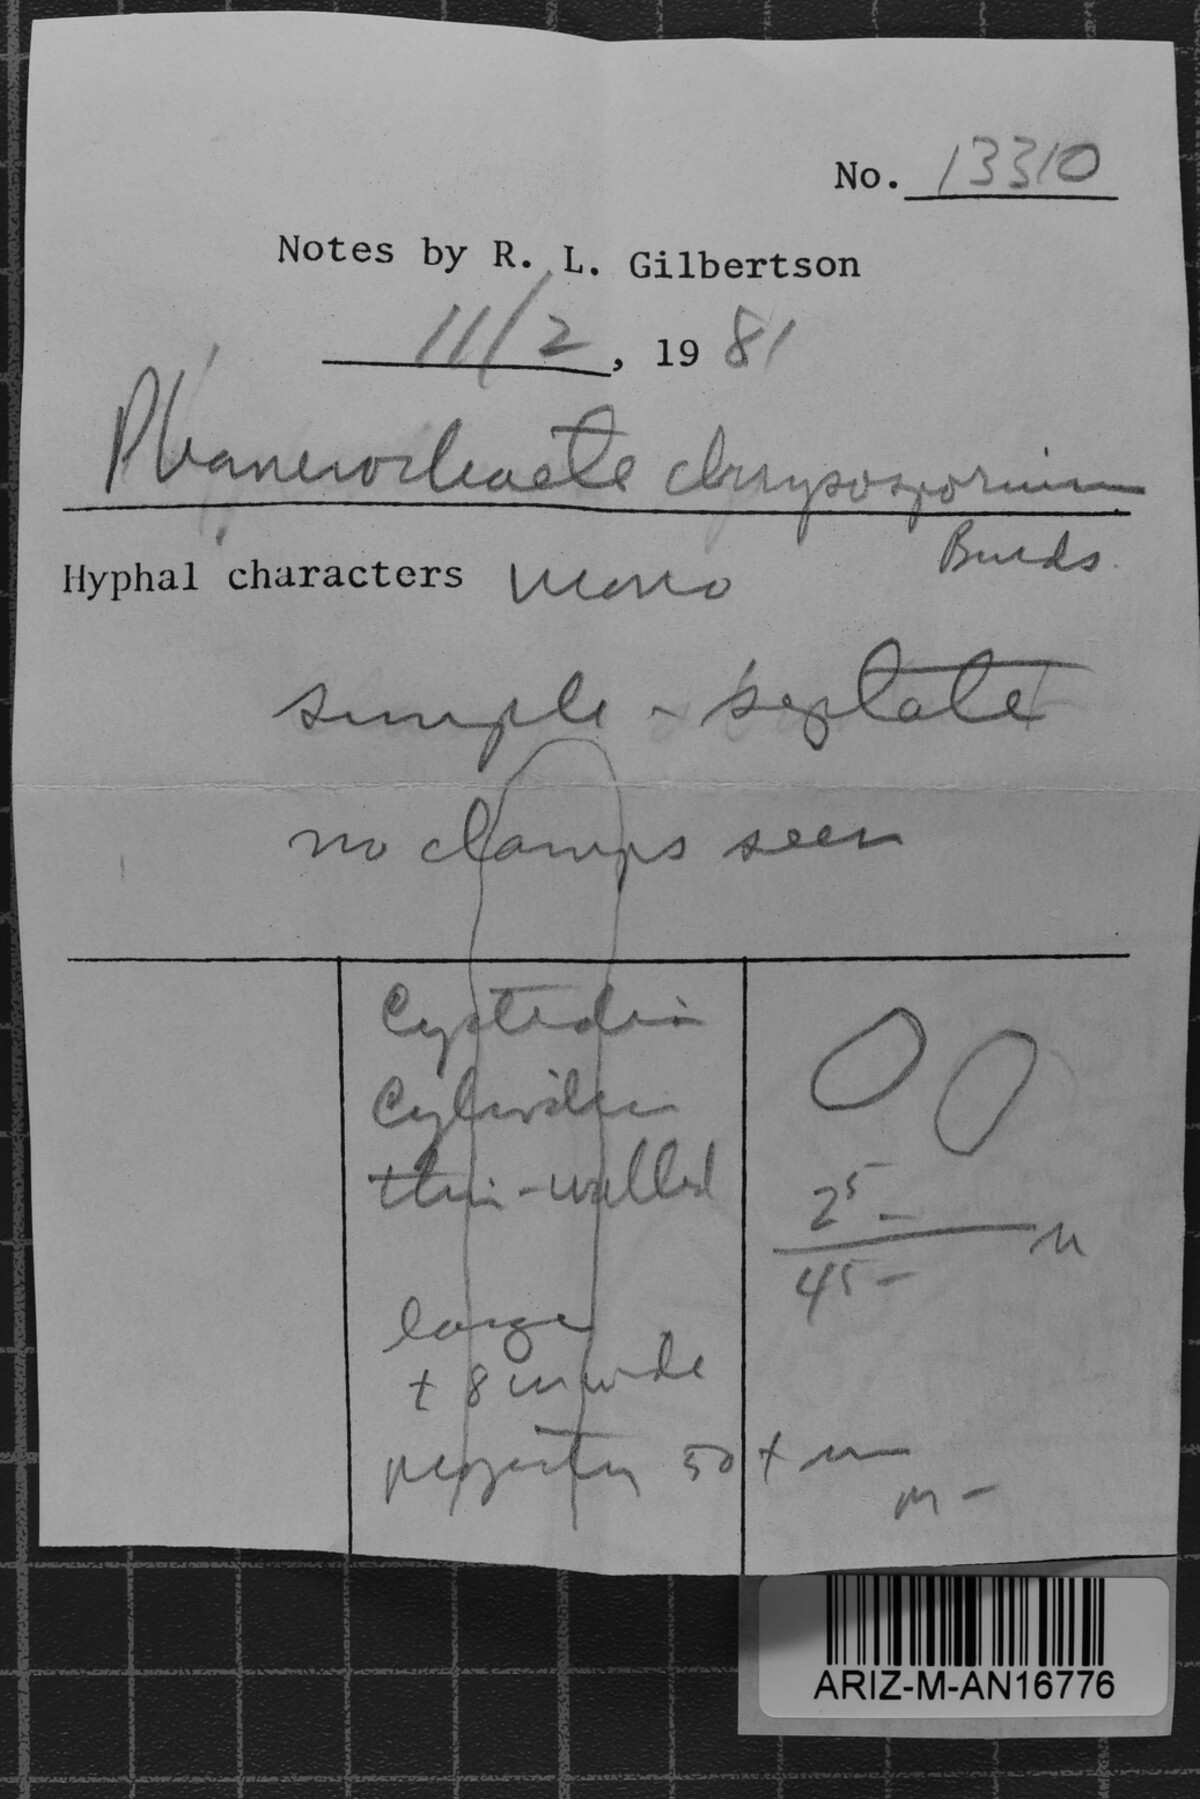 No. 13310
Notes by R. L. Gilbertson
11/2, 1981
Phanerochaete chrysosporium
Burds.
Hyphal characters mono
simple - septate
no clamps seen
Cystidia
Cylindric
thin-walled
large
+ 8 um wide
projecting 50 + um
25 -
45 - u
m -
ARIZ-M-AN16776